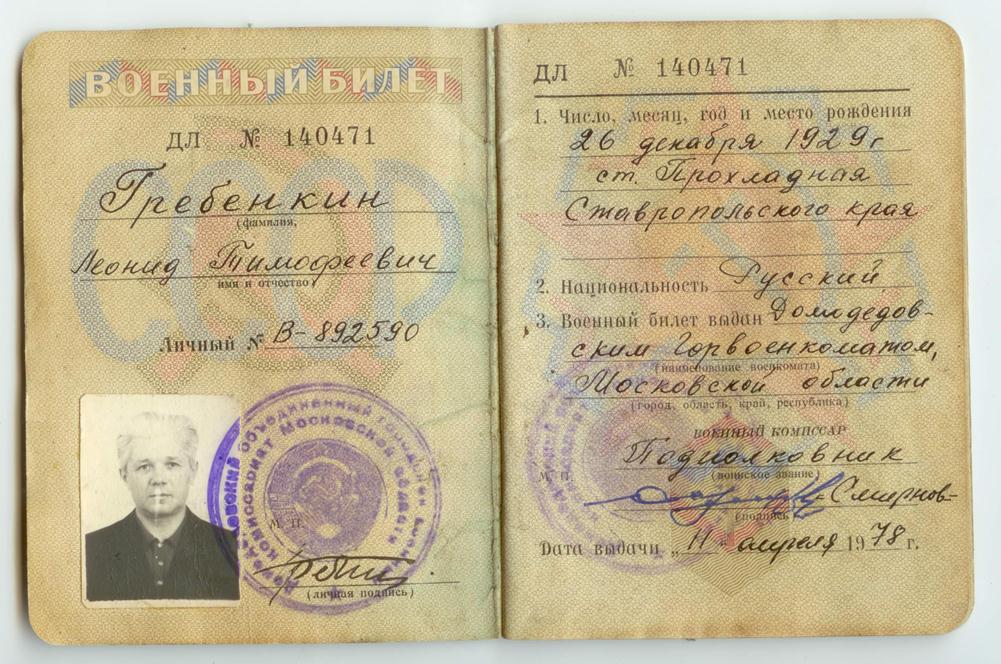 ВОЕННЫЙ БИЛЕТ
ДЛ № 140471
Гребенкин
(фамилия,
Леонид Тимофеевич
имя и отчество)
Личный № В-892590
М. П.
(личная подпись)
ДЛ № 140471
1. Число, месяц, год и место рождения
26 декабря 1929г
ст. Прохладная
Ставропольского края
2. Национальность Русский
3. Военный билет выдан Домодедов-
ским Горвоенкоматом,
(наименование военкомата)
Московской области
(город, область, край, республика)
ВОЕННЫЙ КОМИССАР
Подполковник
М. П.
(воинское звание)
Смирнов
(подпись)
Дата выдачи „11" апреля 1978 г.
СССР
объединенный городской
комиссариат Московской области